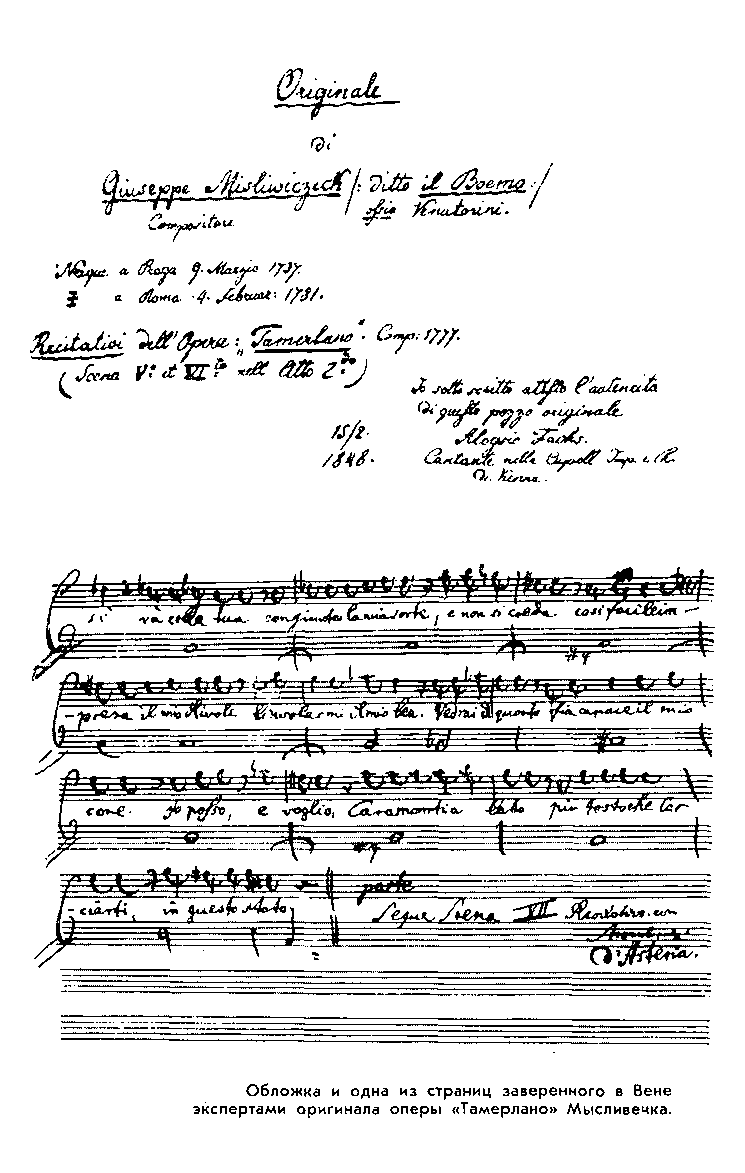 Originale
di
Giuseppe Misliwiczeck /: ditto il Boemo :/
Compositore ossia Venatorini.
Nacque a Praga 9. Marzio 1737.
‡ a Roma 4. Februar: 1781.
Recitativi dell'Opera: „Tamerlano“. Comp: 1777.
(Scena V.ª et VI.ta nell Atto 2.do)
Io sotto scritto attesto l'autencita
di questo pezzo originale
15/2. Aloysio Fuchs.
1848. Cantante nella Capell Imp. e R.
di Vienna.
si và colla tua congiunta la mia sorte, e non si creda così facile im-
-presa il mio
Vedrai di quanto sia capace il mio
core. Io posso, e voglio, Cara più tosto che lar
-ciarti, in questo stato
parte
Segue Scena VII con
d'Asteria.
Обложка и одна из страниц заверенного в Вене
экспертами оригинала оперы «Тамерлано» Мысливечка.